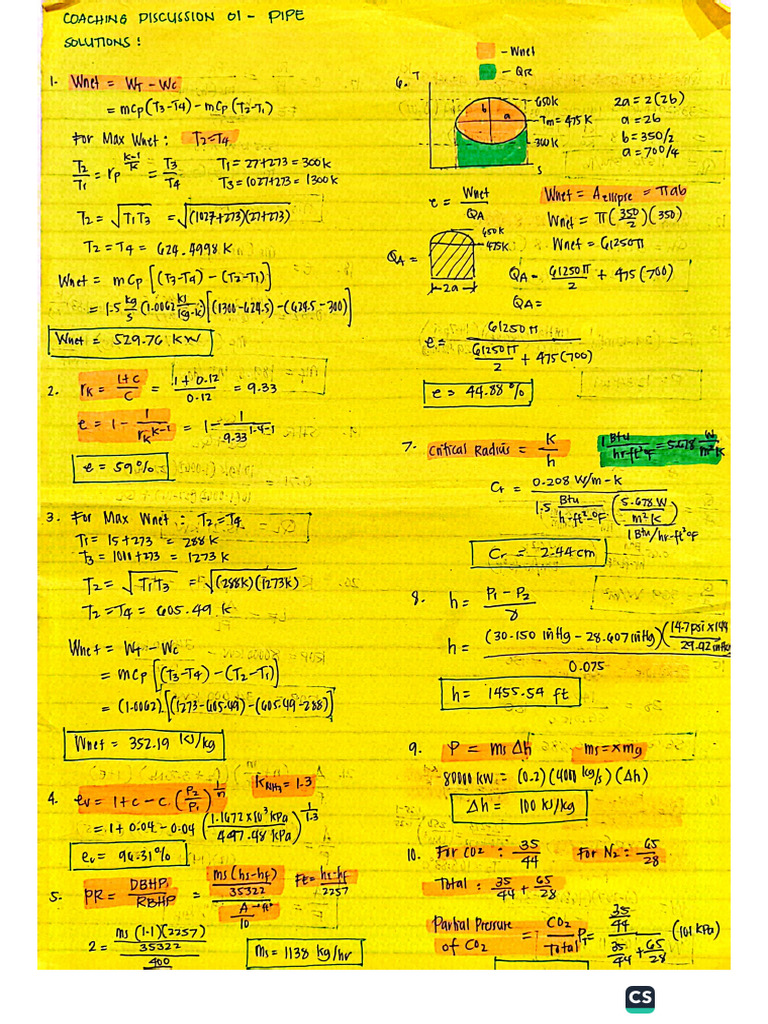 COACHING DISCUSSION 01 - PIPE
SOLUTIONS:
1. Wnet = WT - WC
= mCp(T3-T4) - mCp(T2-T1)
For Max Wnet: T2=T4
T2/T1 = rp^(k-1/k) = T3/T4
T1 = 27+273 = 300K
T3 = 1027+273 = 1300K
T2 = √(T1T3) = √((1027+273)(27+273))
T2 = T4 = 624.4998 K
Wnet = mCp[(T3-T4) - (T2-T1)]
= 1.5 kg/s (1.0062 kJ/kg-K)[(1300-624.5)-(624.5-300)]
Wnet = 529.76 KW
2. rK = 1+c/c = 1+0.12/0.12 = 9.33
e = 1 - 1/rK^(k-1) = 1 - 1/9.33^(1.4-1)
e = 59%
3. For Max Wnet: T2=T4
T1 = 15+273 = 288K
T2 = √(T1T3) = √((288K)(1273K))
T2 = T4 = 605.49 K
Wnet = WT - WC
= mCp[(T3-T4) - (T2-T1)]
= (1.0062)[(1273-605.49)-(605.49-288)]
Wnet = 352.19 KJ/kg
4. ev = 1+c-c(P2/P1)^(1/n)
KNH3 = 1.3
= 1+0.04-0.04(1.1672x10³ kPa/497.48 kPa)^(1/1.3)
ev = 96.31%
5. PR = DBHP/RBHP = ms(hs-hf)/35322 / A→ft²/10
Fe = hs-hf/2257
2 = ms(1.1)(2257)/35322 / 400
ms = 1138 kg/hr
- Wnet
- QR
6. T
650K
Tm = 475K
300K
b
a
S
2a = 2(2b)
a = 2b
b = 350/2
a = 700/4
e = Wnet/QA
Wnet = Aellipse = πab
Wnet = π(350/2)(350)
Wnet = 61250π
QA =
650K
475K
2a
QA = 61250π/2 + 475(700)
QA =
e = 61250π / 61250π/2 + 475(700)
e = 44.88%
7. Critical Radius = K/h
1 Btu/hr-ft²°F = 5.678 W/m²K
Cr = 0.208 W/m-K / 1.5 Btu/h-ft²-°F (5.678 W/m²K / 1 Btu/hr-ft²°F)
Cr = 2.44 cm
8. h = P1-P2/γ
h = (30.150 inHg - 28.607 inHg)(14.7 psi x 144/29.92 inHg) / 0.075
h = 1455.54 ft
9. P = ms Δh
ms = x mg
Δh = 100 KJ/kg
10. For CO2 : 35/44
For N2 : 65/28
Total : 35/44 + 65/28
Partial Pressure
of CO2 = CO2/Total PT = 35/44 / 35/44 + 65/28 (101 kPa)
CS